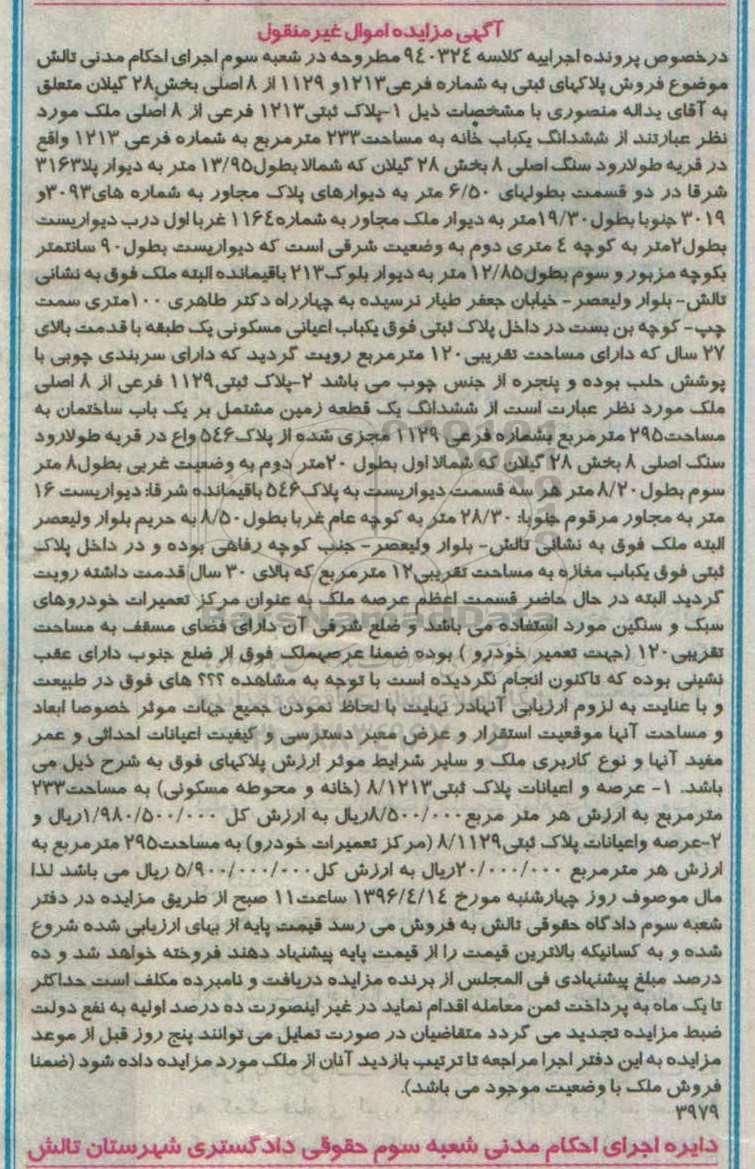 آگهی مزایده اموال غیرمنقول
درخصوص پرونده اجراییه کلاسه ۹٤۰۳۲٤ مطروحه در شعبه سوم اجرای احکام مدنی تالش
موضوع فروش پلاکهای ثبتی به شماره فرعی۱۲۱۳و ۱۱۲۹ از ۸ اصلی بخش۲۸ گیلان متعلق
به آقای یداله منصوری با مشخصات ذیل ۱-پلاک ثبتی۱۲۱۳ فرعی از ۸ اصلی ملک مورد
نظر عبارتند از ششدانگ یکباب خانه به مساحت۲۳۳ مترمربع به شماره فرعی ۱۲۱۳ واقع
در قریه طولارود سنگ اصلی ۸ بخش ۲۸ گیلان که شمالا بطول۱۳/۹۵ متر به دیوار پلا۳۱۶۳
شرقا در دو قسمت بطولهای ۶/۵۰ متر به دیوارهای پلاک مجاور به شماره های۳۰۹۳و
۳۰۱۹ جنوبا بطول۱۹/۳۰متر به دیوار ملک مجاور به شماره۱۱۶٤ غربا اول درب دیواریست
بطول۲متر به کوچه ٤ متری دوم به وضعیت شرقی است که دیواریست بطول۹۰ سانتمتر
بکوچه مزبور و سوم بطول۱۲/۸۵ متر به دیوار بلوک۲۱۳ باقیمانده البته ملک فوق به نشانی
تالش- بلوار ولیعصر- خیابان جعفر طیار نرسیده به چهارراه دکتر طاهری ۱۰۰متری سمت
چپ- کوچه بن بست در داخل پلاک ثبتی فوق یکباب اعیانی مسکونی یک طبقه با قدمت بالای
۲۷ سال که دارای مساحت تقریبی۱۲۰ مترمربع رویت گردید که دارای سربندی چوبی با
پوشش حلب بوده و پنجره از جنس چوب می باشد ۲-پلاک ثبتی۱۱۲۹ فرعی از ۸ اصلی
ملک مورد نظر عبارت است از ششدانگ یک قطعه زمین مشتمل بر یک باب ساختمان به
مساحت۲۹۵ مترمربع بشماره فرعی ۱۱۲۹ مجزی شده از پلاک۵٤۶ واع در قریه طولارود
سنگ اصلی ۸ بخش ۲۸ گیلان که شمالا اول بطول ۲۰متر دوم به وضعیت غربی بطول۸ متر
سوم بطول۸/۲۰ متر هر سه قسمت دیواریست به پلاک۵٤۶ باقیمانده شرقا: دیواریست ۱۶
متر به مجاور مرقوم جنوبا: ۲۸/۳۰ متر به کوچه عام غربا بطول۸/۵۰ به حریم بلوار ولیعصر
البته ملک فوق به نشانی تالش- بلوار ولیعصر- جنب کوچه رفاهی بوده و در داخل پلاک
ثبتی فوق یکباب مغازه به مساحت تقریبی۱۲ مترمربع که بالای ۳۰ سال قدمت داشته رویت
گردید البته در حال حاضر قسمت اعظم عرصه ملک به عنوان مرکز تعمیرات خودروهای
سبک و سنگین مورد استفاده می باشد و ضلع شرقی آن دارای فضای مسقف به مساحت
تقریبی۱۲۰ (جهت تعمیر خودرو ) بوده ضمنا عرصهملک فوق از ضلع جنوب دارای عقب
نشینی بوده که تاکنون انجام نگردیده است با توجه به مشاهده ؟؟؟ های فوق در طبیعت
و با عنایت به لزوم ارزیابی آنهادر نهایت با لحاظ نمودن جمیع جهات موثر خصوصا ابعاد
و مساحت آنها موقعیت استقرار و عرض معبر دسترسی و کیفیت اعیانات احداثی و عمر
مفید آنها و نوع کاربری ملک و سایر شرایط موثر ارزش پلاکهای فوق به شرح ذیل می
باشد. ۱- عرصه و اعیانات پلاک ثبتی۸/۱۲۱۳ (خانه و محوطه مسکونی) به مساحت۲۳۳
مترمربع به ارزش هر متر مربع۸/۵۰۰/۰۰۰ریال به ارزش کل ۱/۹۸۰/۵۰۰/۰۰۰ریال و
۲-عرصه واعیانات پلاک ثبتی۸/۱۱۲۹ (مرکز تعمیرات خودرو) به مساحت۲۹۵ مترمربع به
ارزش هر مترمربع ۲۰/۰۰۰/۰۰۰ریال به ارزش کل۵/۹۰۰/۰۰۰/۰۰۰ ریال می باشد لذا
مال موصوف روز چهارشنبه مورخ ۱۳۹۶/٤/۱٤ ساعت۱۱ صبح از طریق مزایده در دفتر
شعبه سوم دادگاه حقوقی تالش به فروش می رسد قیمت پایه از بهای ارزیابی شده شروع
شده و به کسانیکه بالاترین قیمت را از قیمت پایه پیشنهاد دهند فروخته خواهد شد و ده
درصد مبلغ پیشنهادی فی المجلس از برنده مزایده دریافت و نامبرده مکلف است حداکثر
تا یک ماه به پرداخت ثمن معامله اقدام نماید در غیر اینصورت ده درصد اولیه به نفع دولت
ضبط مزایده تجدید می گردد متقاضیان در صورت تمایل می توانند پنج روز قبل از موعد
مزایده به این دفتر اجرا مراجعه تا ترتیب بازدید آنان از ملک مورد مزایده داده شود (ضمنا
فروش ملک با وضعیت موجود می باشد).
۳۹۷۹
دایره اجرای احکام مدنی شعبه سوم حقوقی دادگستری شهرستان تالش